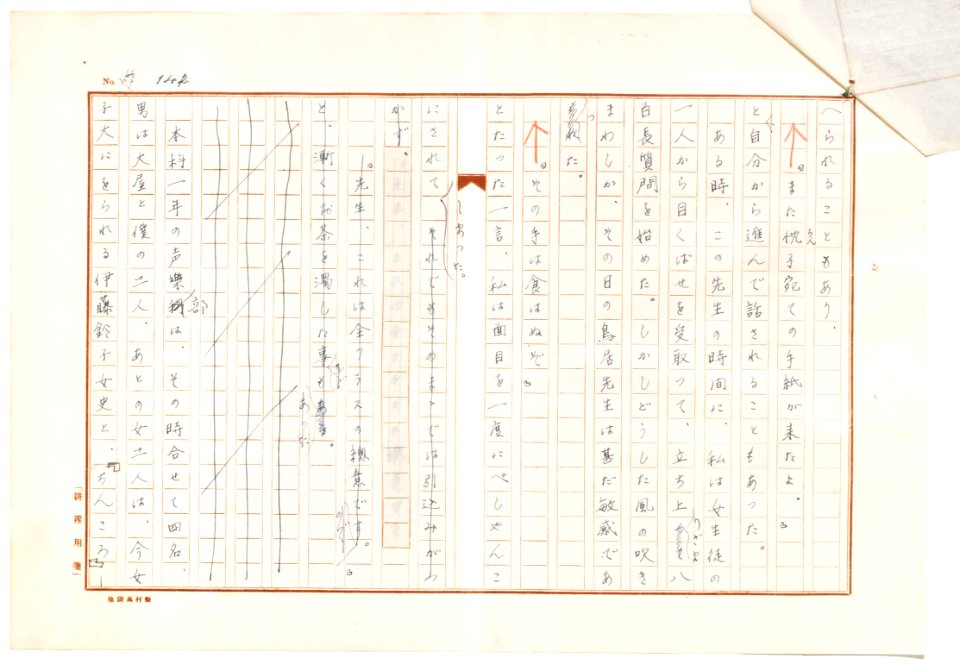 へられることもあり、
「また枕子宛ての手紙が来たよ。」
と自分から進んで話されることもあった。
ある時、この先生の時間に、私は女生徒の
一人から目くばせを受取って、立ち上
わざと八
百長質問を始めた。しかしどうした風の吹き
まわしか、その日の鳥居先生は甚だ敏感であ
った。
「その手は食はぬぞ」
とたった一言、私は面目を一度にぺしゃんこ
にされてしまった。それでもそのまゝでは引込みがつ
かず、
「先生、これは全クラスの総意です。」
と、漸くお茶を濁した
あった。
本科一年の声楽部は、その時合せて四名、
男は大屋と僕の二人、あとの女二人は、今女
子大にをられる伊藤鈴子女史と、ちんころ
No. 142
「耕稼用箋」